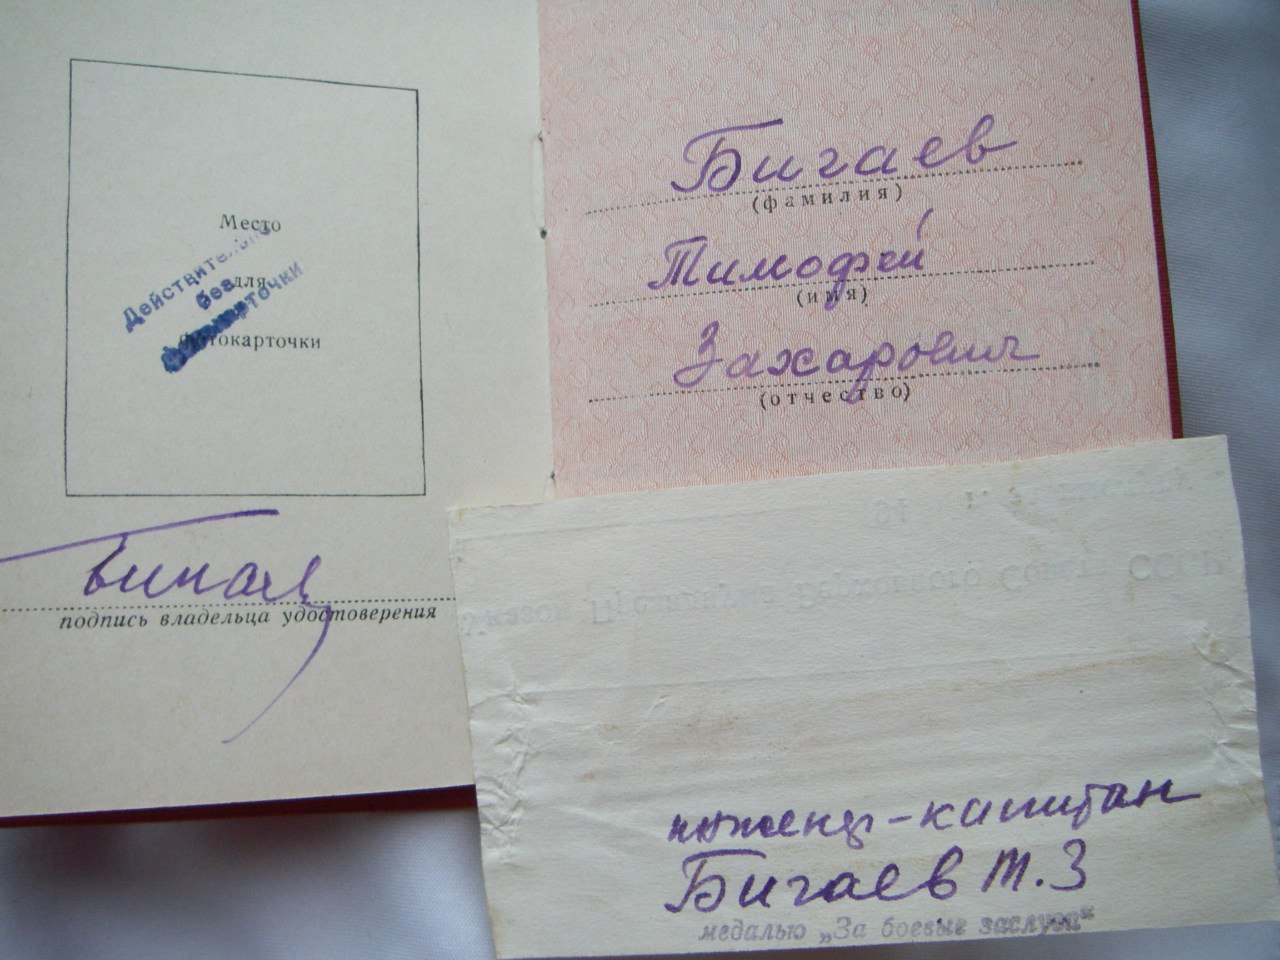 Место
для
фотокарточки
Действительно
без
фотокарточки
подпись владельца удостоверения
Бигаев
(фамилия)
Тимофей
(имя)
Захарович
(отчество)
Указом Президиума Верховного Совета СССР
от
инженер-капитан
Бигаев Т.З
медалью „За боевые заслуги"